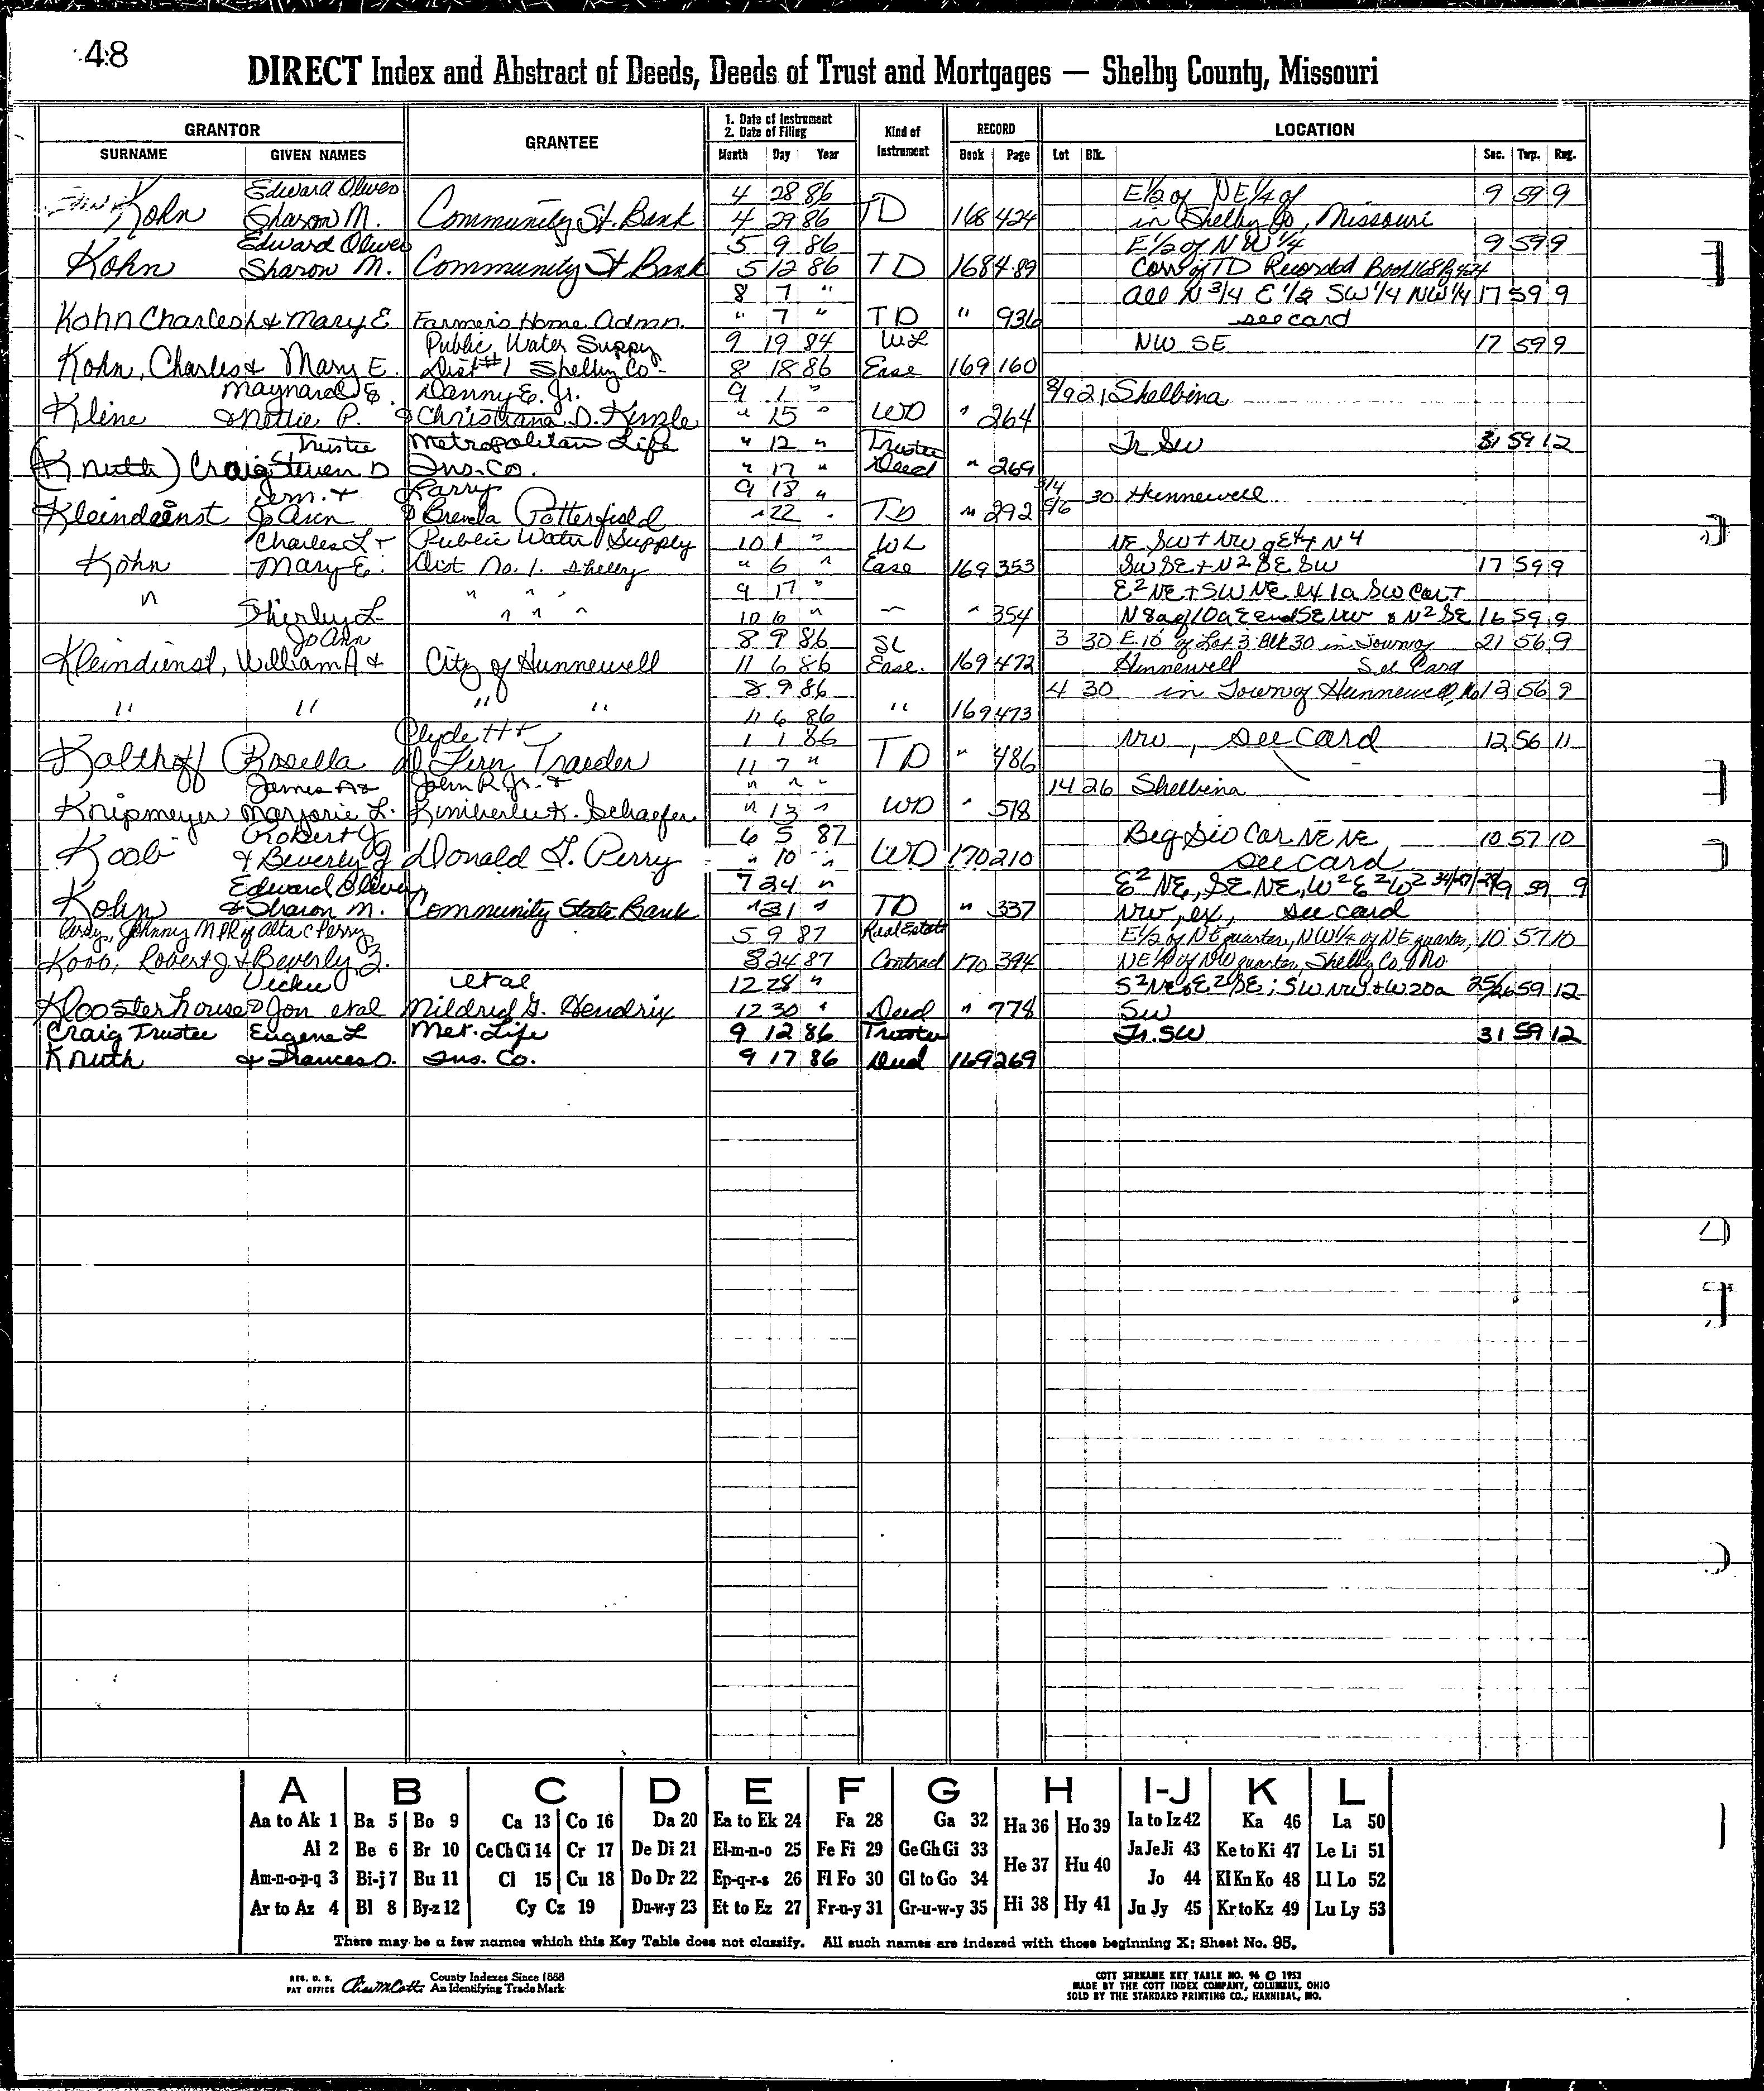 48
DIRECT Index and Abstract of Deeds, Deeds of Trust and Mortgages — Shelby County, Missouri
GRANTOR GRANTEE 1. Date of Instrument 2. Date of Filing Kind of Instrument RECORD LOCATION
SURNAME GIVEN NAMES Month Day Year Book Page Lot Blk. Sec. Twp. Rng.
Edward Oliver 4 28 86 E1/2 of NE1/4 of 9 59 9
Kohn Sharon M. Community St. Bank 4 29 86 TD 168 424 in Shelby Co, Missouri
Edward Oliver 5 9 86 E1/2 of NW 1/4 9 59 9
Kohn Sharon M. Community St Bank 5 12 86 TD 168 489 Corr of TD Recorded Book 168 Pg 424
8 7 " All N 3/4 E 1/2 SW 1/4 NW 1/4 17 59 9
Kohn Charles L & Mary E Farmer's Home Admn. " 7 " TD " 936 see card
Public Water Supply 9 19 84 WL NW SE 17 59 9
Kohn, Charles & Mary E. Dist #1 Shelby Co- 8 18 86 Ease 169 160
Maynard E. Danny E. Jr. 9 1 " 8/9 21 Shelbina
Kline & Nettie P. & Christiana D. Kimzle " 15 " WD " 264
Trustee Metropolitan Life " 12 " Trustee Tr SW 31 59 12
(Knuth) Craig Steven D Ins. Co. " 17 " Deed " 269
Jerm. & Larry 9 18 " 3/4 30 Hunnewell
Kleindienst Jo Ann & Brenda Potterfield " 22 " TD " 292 5/6
Charles L + Public Water Supply 10 1 " WL NE SW + NW SE 1/4 + N 4
Kohn Mary E. Dist No. 1. Shelby " 6 " Ease 169 353 SW SE + N2 SE SW 17 59 9
9 17 " E2 NE + SW NE ex 1a SW Cor +
" Shirley L " " " 10 6 " " 354 N 8a of 10a E end SE NW & N2 SE 16 59 9
Jo Ann 8 9 86 SL 3 30 E. 10' of Lot 3 Blk 30 in Town of 21 56 9
Kleindienst, William A & City of Hunnewell 11 6 86 Ease. 169 472 Hunnewell See Card
8 9 86 4 30 in Town of Hunnewell, Mo 12 56 9
" " " " 11 6 86 " 169 473
Clyde H + 1 1 86 NW, see card 12 56 11
Kalthoff Rosella D Fern Traeder 11 7 " TD " 486
James A & John R. Jr. & " " " 14 26 Shelbina
Knipmeyer Marjorie L. Kimberlee K. Schaefer " 13 " WD " 518
Robert J 6 5 87 Beg SW Cor NE NE 10 57 10
Koob & Beverly J Donald L. Perry " 10 " WD 170 210 see card
Edward Oliver 7 24 " E2 NE, SE NE, W2 E2 W2 9 59 9
Kohn & Sharon M. Community State Bank " 31 " TD " 337 NW, ex, see card
Perry, Johnny M PR of Alta C Perry 5 9 87 Real Estate E1/2 of NE quarter, NW1/4 of NE quarter, 10 57 10
Koob, Robert J & Beverly J. 8 24 87 Contract 170 394 NE1/4 of NW quarter, Shelby Co. Mo
Vicku etal 12 28 " S2 NE & E2 SE; SW NW & W20a 25/26 59 12
Kloosterhouse & Jon etal Mildred G. Hendrix 12 30 " Deed " 778 SW
Craig Trustee Eugene L Met. Life 9 12 86 Trustee Fr. SW 31 59 12
Knuth & Frances O. Ins. Co. 9 17 86 Deed 169 269
A B C D E F G H I-J K L
Aa to Ak 1 Ba 5 Bo 9 Ca 13 Co 16 Da 20 Ea to Ek 24 Fa 28 Ga 32 Ha 36 Ho 39 Ia to Iz 42 Ka 46 La 50
Al 2 Be 6 Br 10 Ce Ch Ci 14 Cr 17 De Di 21 El-m-n-o 25 Fe Fi 29 Ge Gh Gi 33 He 37 Hu 40 Ja Je Ji 43 Ke to Ki 47 Le Li 51
Am-n-o-p-q 3 Bi-j 7 Bu 11 Cl 15 Cu 18 Do Dr 22 Ep-q-r-s 26 Fl Fo 30 Gl to Go 34 Jo 44 Kl Kn Ko 48 Ll Lo 52
Ar to Az 4 Bl 8 By-z 12 Cy Cz 19 Du-w-y 23 Et to Ez 27 Fr-u-y 31 Gr-u-w-y 35 Hi 38 Hy 41 Ju Jy 45 Kr to Kz 49 Lu Ly 53
There may be a few names which this Key Table does not classify. All such names are indexed with those beginning X; Sheet No. 95.
REG. U. S. PAT OFFICE County Indexes Since 1888 An Identifying Trade Mark
COTT SURNAME KEY TABLE NO. 96 © 1952
MADE BY THE COTT INDEX COMPANY, COLUMBUS, OHIO
SOLD BY THE STANDARD PRINTING CO., HANNIBAL, MO.